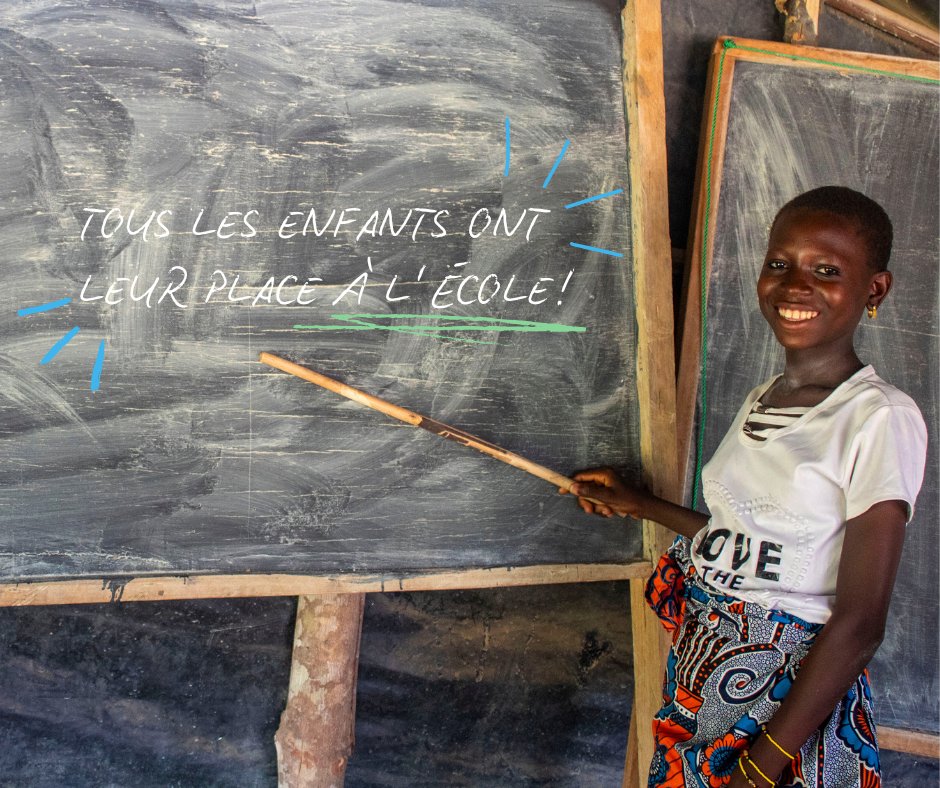 TOUS LES ENFANTS ONT
LEUR PLACE À L'ÉCOLE!
LOVE
THE